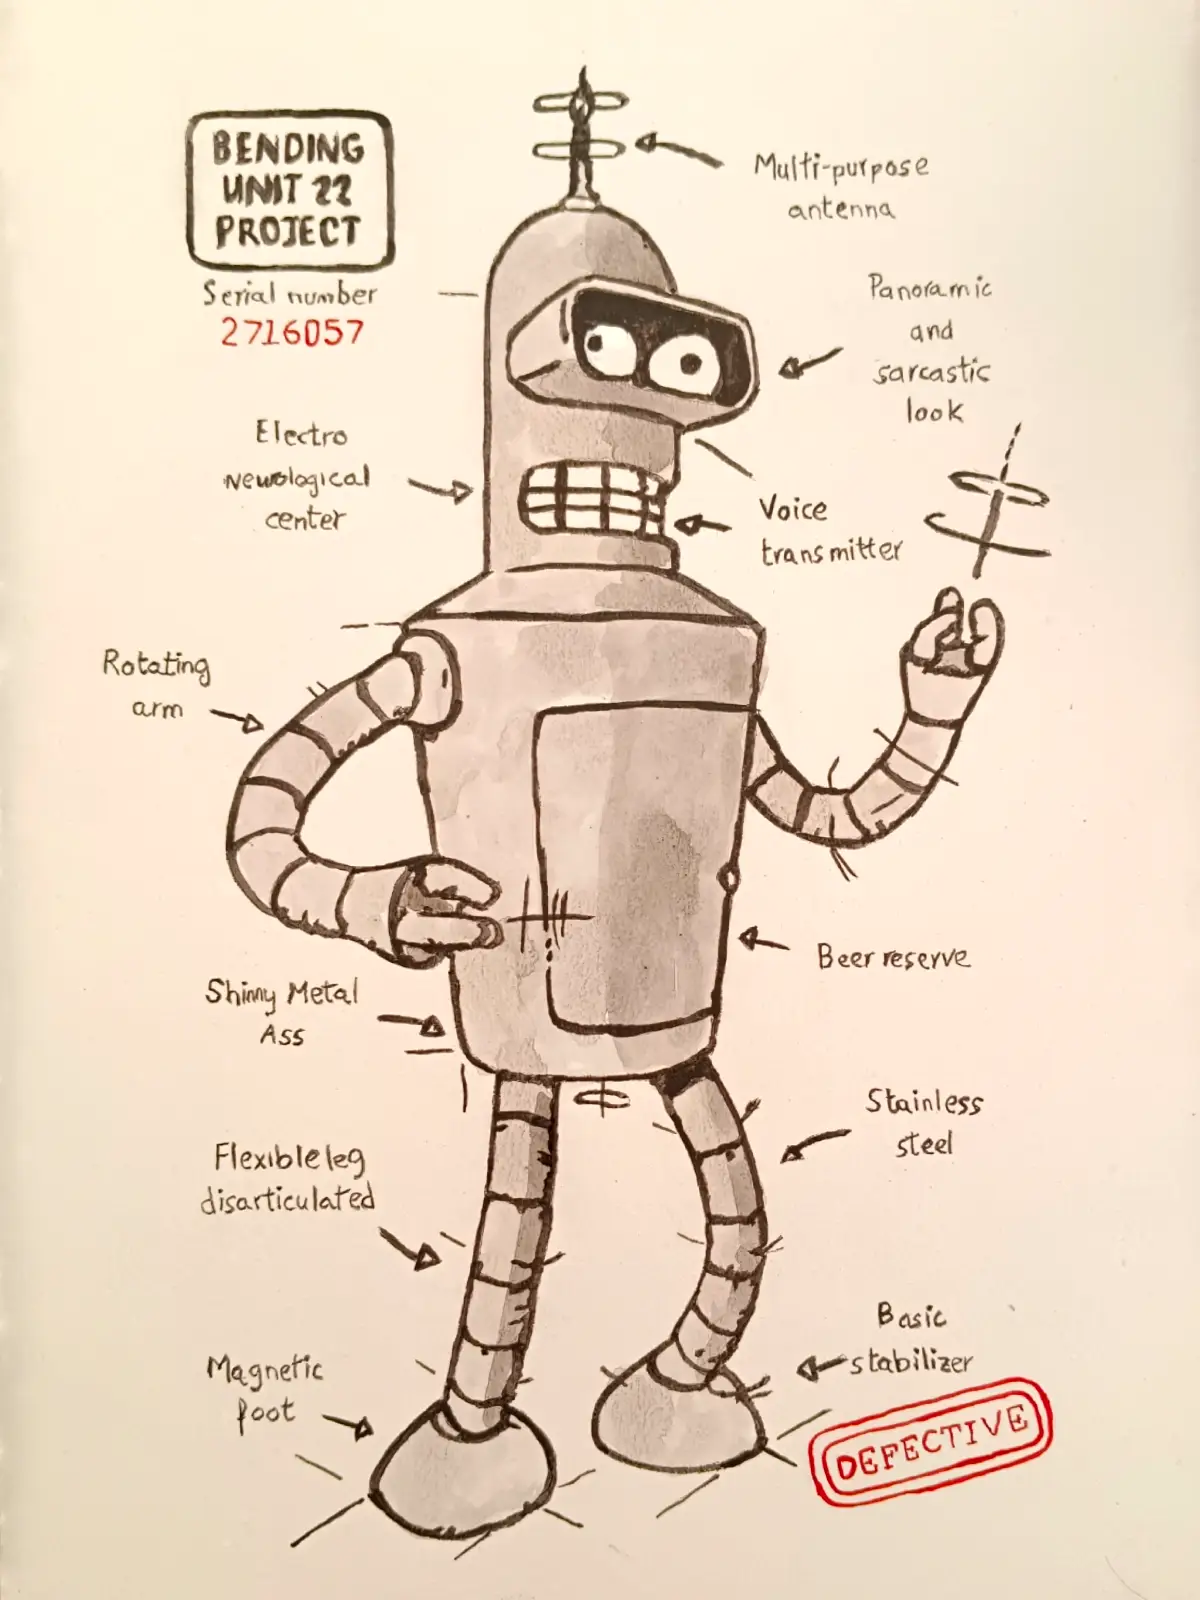 BENDING
UNIT 22
PROJECT
Serial number
2716057
Multi-purpose
antenna
Panoramic
and
sarcastic
look
Electro
newological
center
Voice
transmitter
Rotating
arm
Beer reserve
Shinny Metal
Ass
Stainless
steel
Flexible leg
disarticulated
Basic
stabilizer
Magnetic
foot
DEFECTIVE